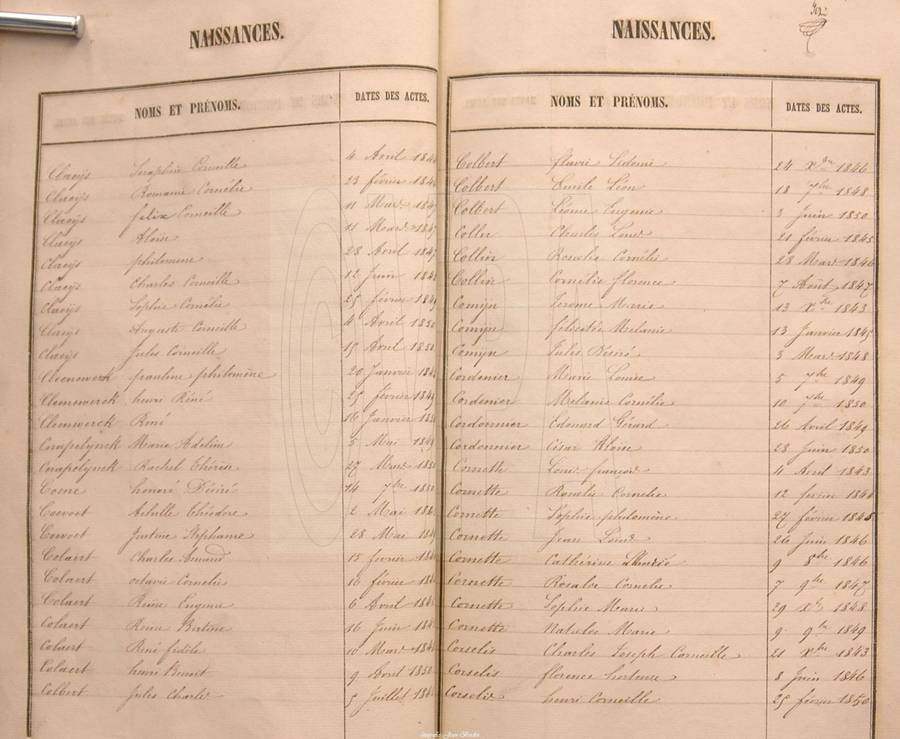 NAISSANCES.
NOMS ET PRÉNOMS. DATES DES ACTES.
Claeijs Seraphin Corneille 4 Avril
Claeijs Romanie Cornélie 23 février
Claeijs felix Corneille 11 Mars
Claeijs Aloise 11 Mars
Claeijs philomene 28 Avril
Claeijs Charles Corneille 12 Juin
Claeijs Sophie Cornélie 25 février
Claeijs Auguste Corneille 4 Avril 1850
Claeijs Jules Corneille 15 Avril
Clemewerck pauline philomène 20 Janvier
Clemewerck henri Réné 25 février
Clemewerck René 16 Janvier
Cnapelynck Marie Adeline 5 Mai
Cnapelynck Rachel Thérèse 27 Mars
Cosne honoré Désiré 14 7bre
Coevoet Achille Théodore 2 Mai
Coevoet Justine Stephanie 28 Mai
Colaert Charles Amand 15 février
Colaert octavie Cornelie 16 février
Colaert Reine Eugenie 6 Avril
Colaert Reine Bertine 16 Juin
Colaert René fidèle 10 Mars
Colaert henri Benoit 9 Avril 1850
Colbert Jules Charles 5 Juillet
NAISSANCES.
NOMS ET PRÉNOMS. DATES DES ACTES.
Colbert flavie Sidonie 24 Xbre 1846
Colbert Emile Léon 18 7bre 1848
Colbert Léonie Eugenie 3 Juin 1850
Collin Charles Louis 21 février 1845
Collin Rosalie Cornélie 28 Mars 1846
Collin Cornélie florence 7 Août 1847
Comyn Jerome Marie 13 Xbre 1843
Comyn felicitée Melanie 13 Janvier 1845
Comyn Jules Désiré 3 Mars 1848
Cordenier Marie Louise 5 7bre 1849
Cordenier Melanie Cornélie 10 7bre 1850
Cordonnier Edouard Gérard 26 Avril 1849
Cordonnier César Aloise 28 Juin 1850
Cornette Louis françois 4 Avril 1843
Cornette Rosalie Cornelie 12 février
Cornette Sophie philomène 27 février 1845
Cornette Jean Louis 26 Juin 1846
Cornette Cathérine 9 8bre 1846
Cornette Rosalie Cornelie 7 9bre 1847
Cornette Sophie Marie 29 Xbre 1848
Cornette Natalie Marie 9 9bre 1849
Corselis Charles Joseph Corneille 21 Xbre 1843
Corselis florence hortence 8 Juin 1846
Corselis henri Corneille 25 février 1850